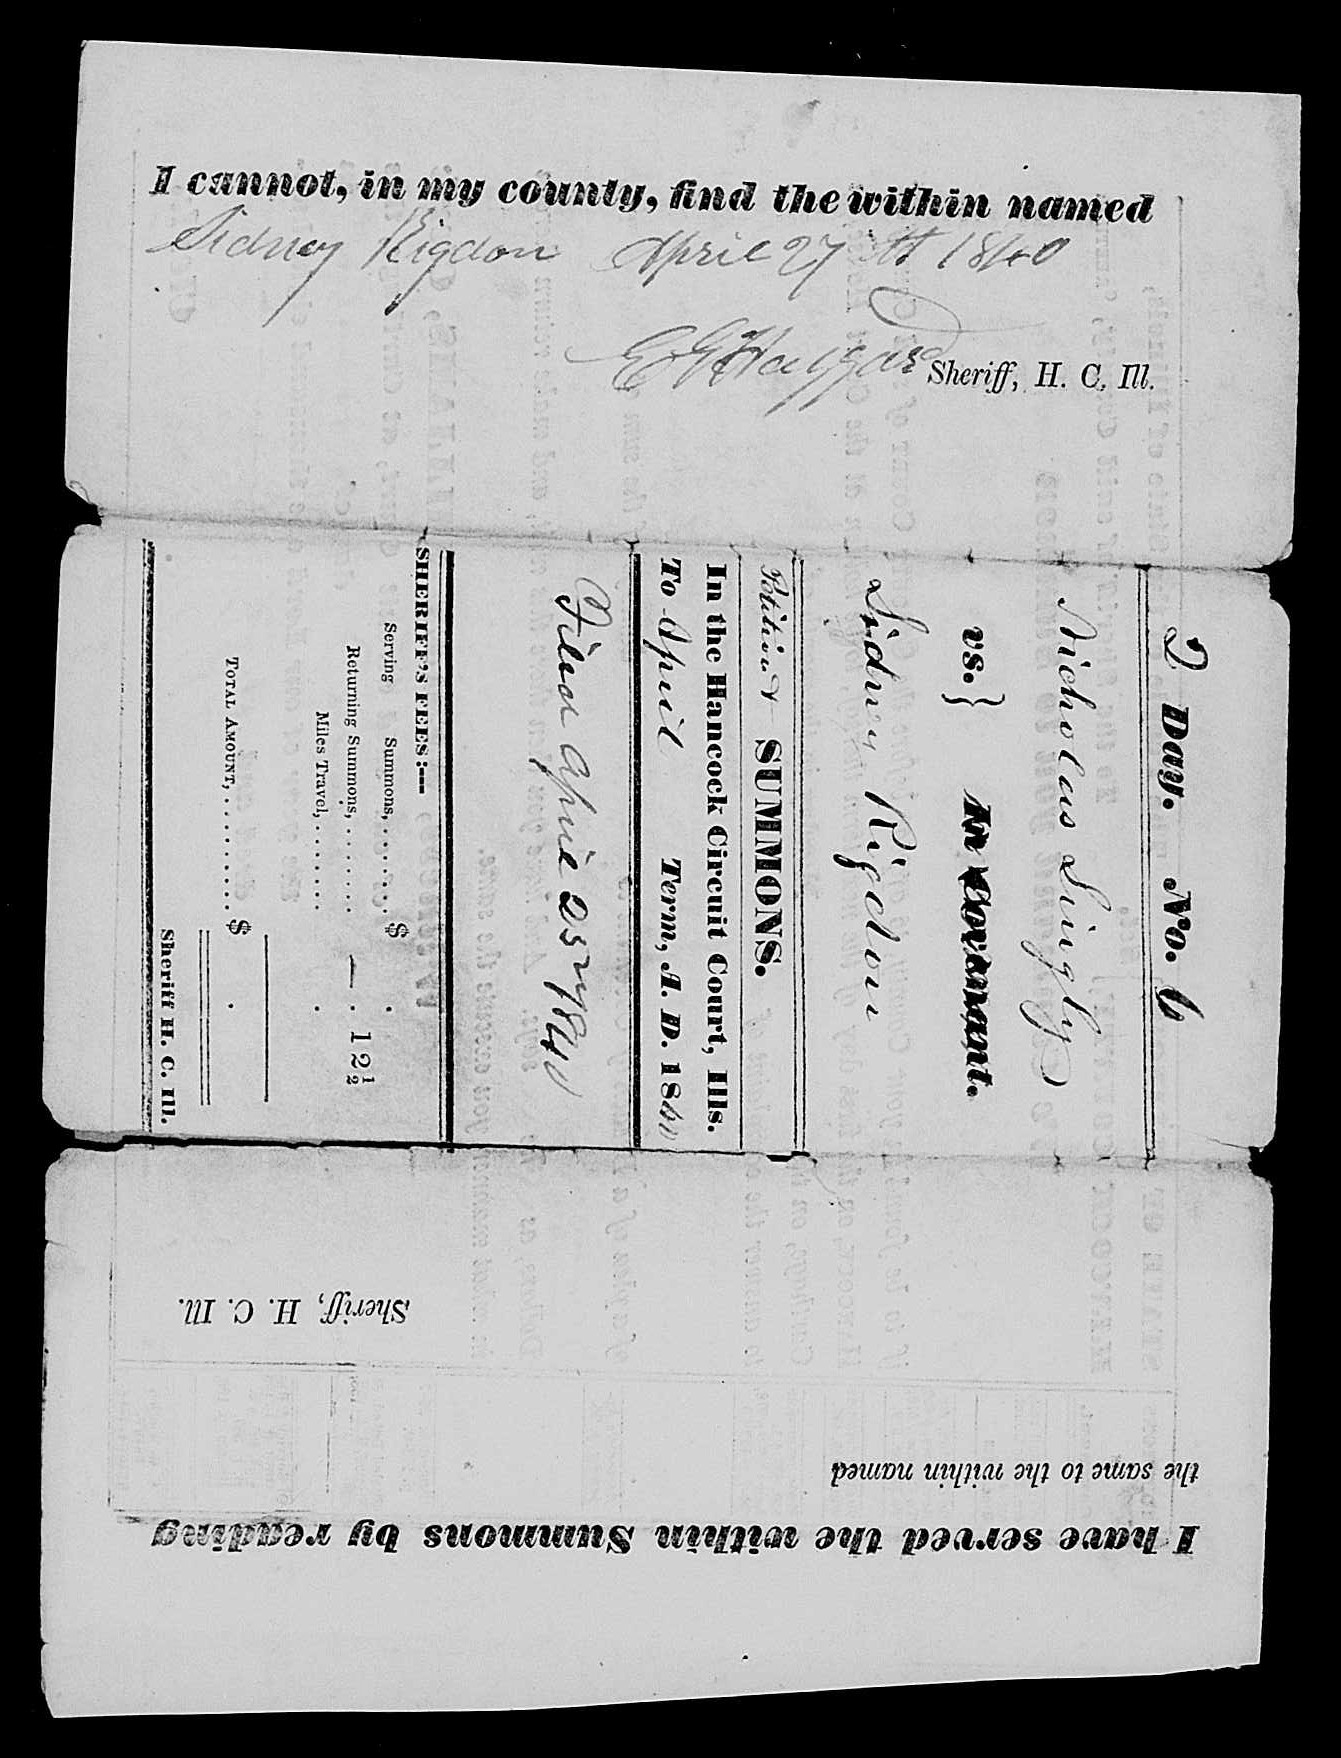 I cannot, in my county, find the within named
Sidney Rigdon April 27th 1840
Sheriff, H. C. Ill.
2 Day. No. 6
Nicholas Singly
vs. } In Covenant.
Sidney Rigdon
Petition & SUMMONS.
In the Hancock Circuit Court, Ills.
To April Term, A. D. 1840
Filed April 25 1840
SHERIFF'S FEES:—
Serving Summons, . . . . . . . $ .
Returning Summons, . . . . . . . — . 12½
Miles Travel, . . . . . . . .
TOTAL AMOUNT, . . . . . . . . . $ .
Sheriff H. C. Ill.
I have served the within Summons by reading
the same to the within named
Sheriff, H. C. Ill.